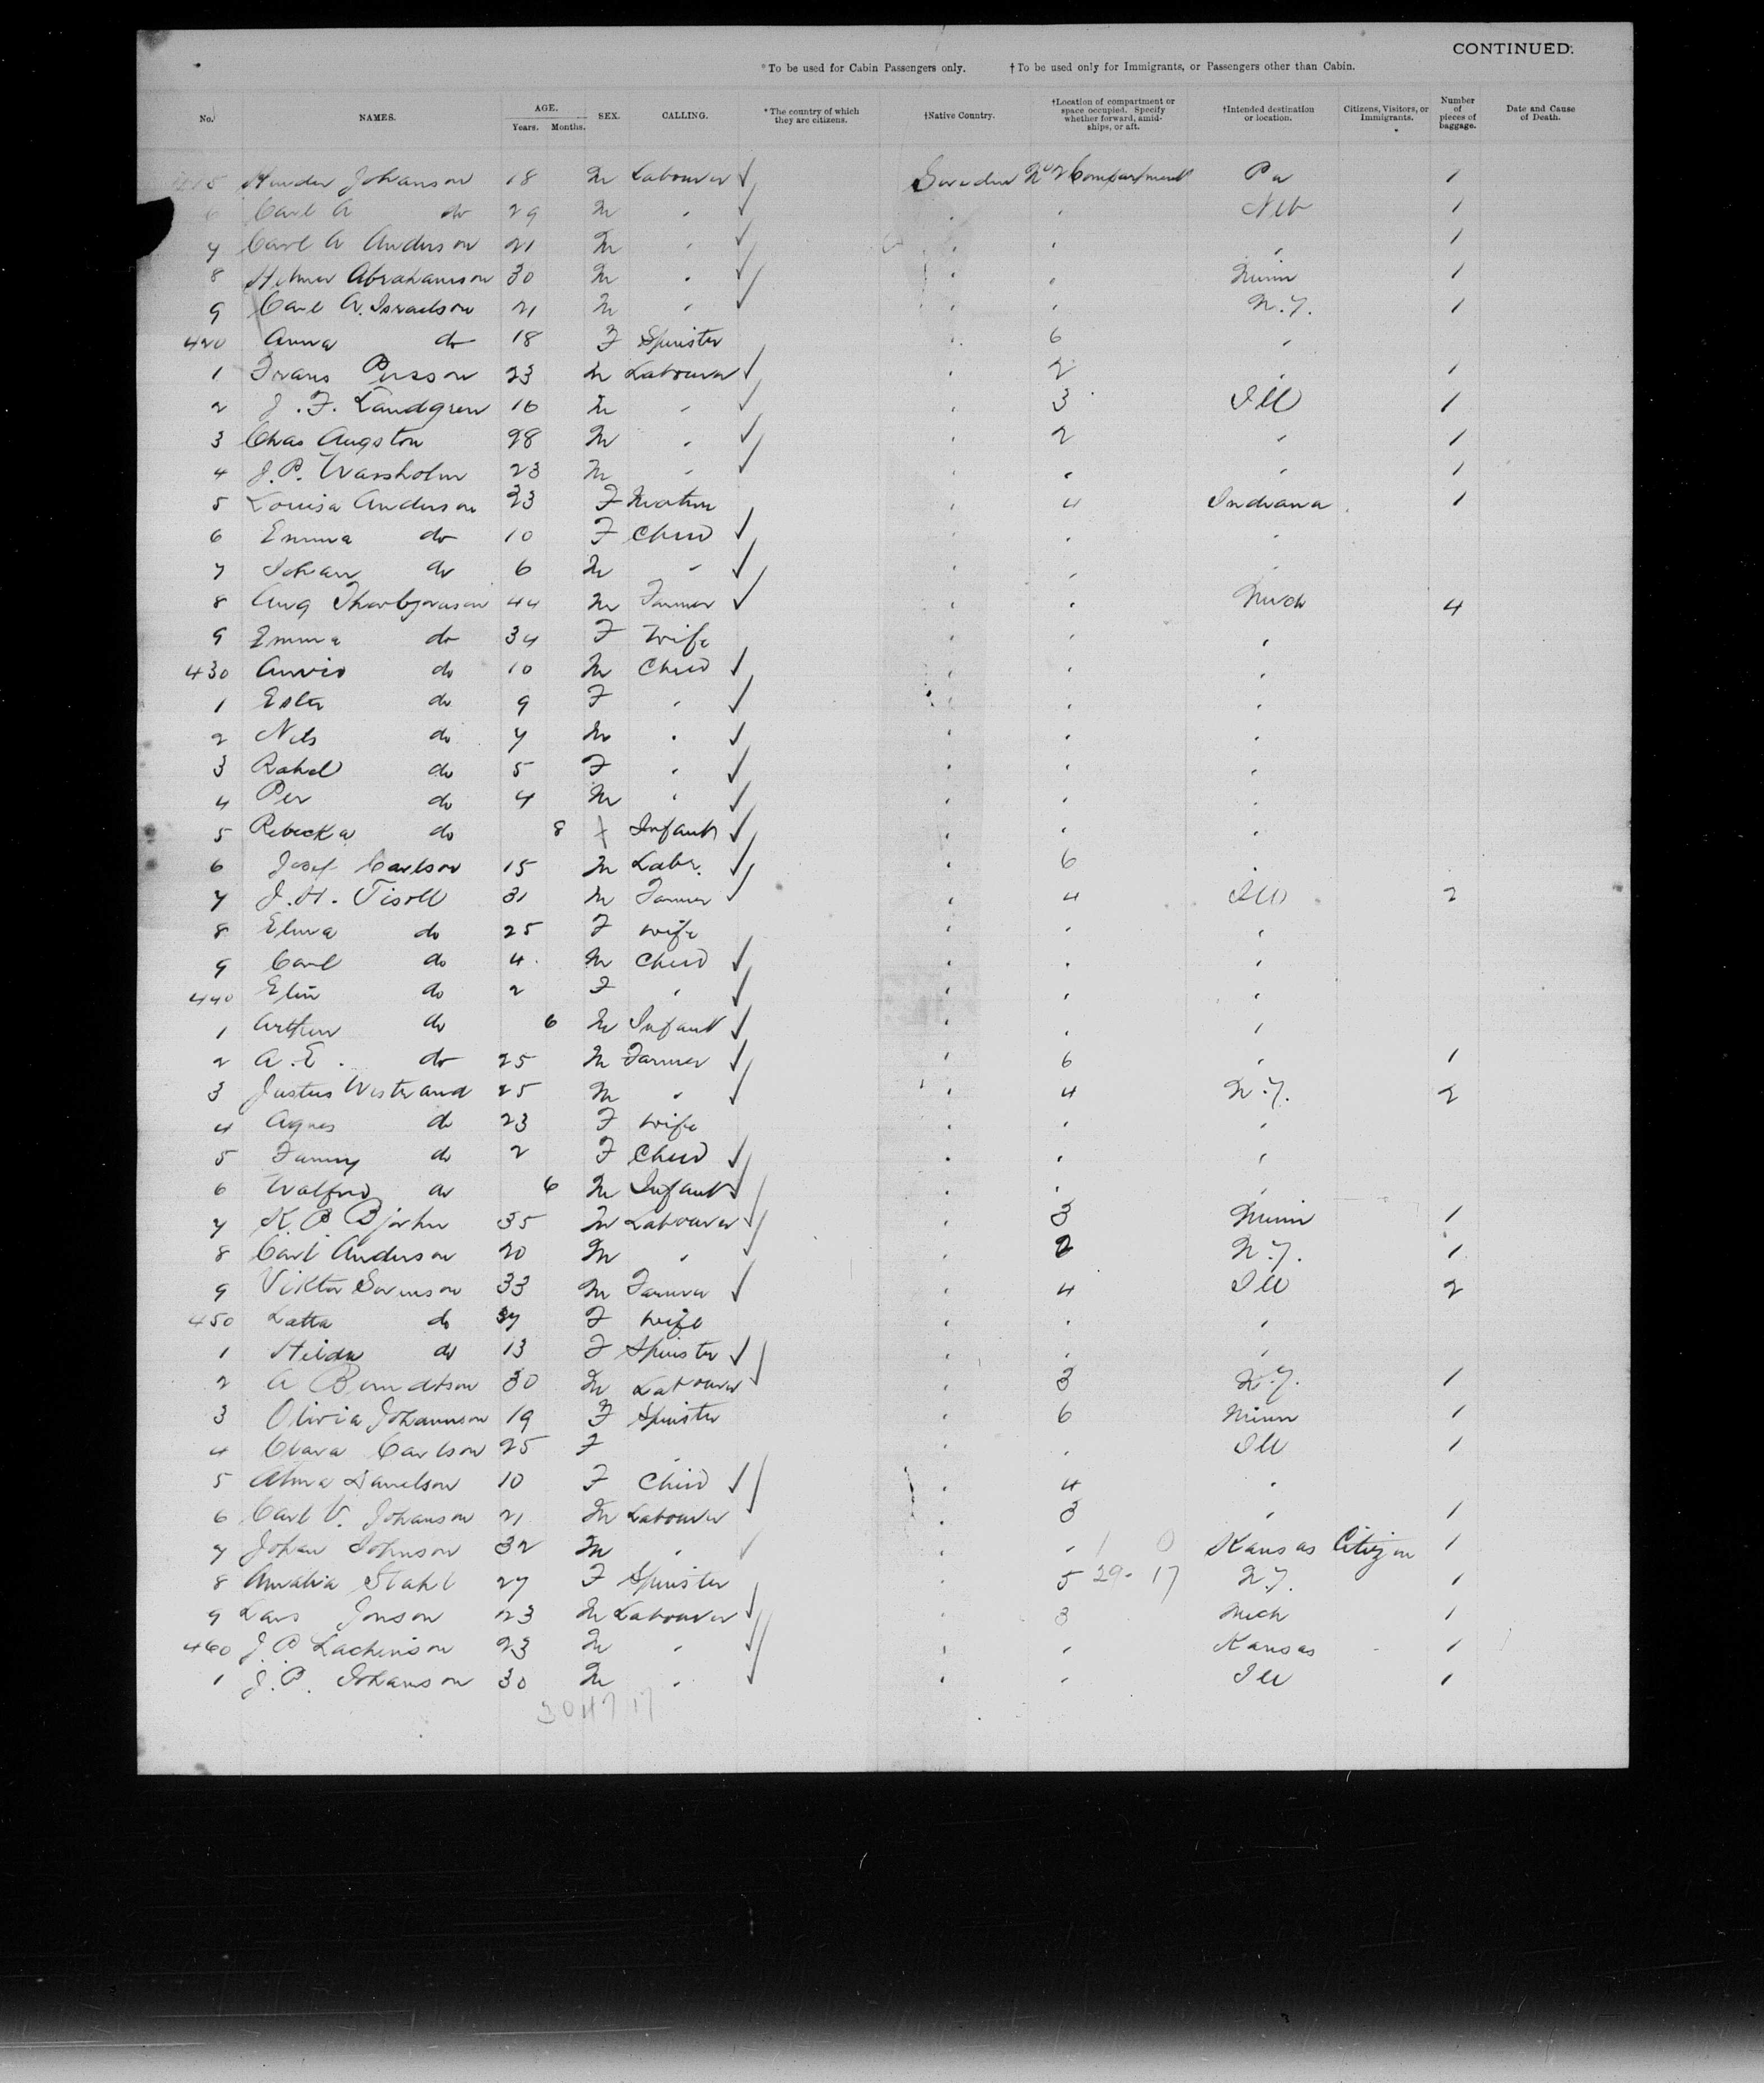 CONTINUED.
*To be used for Cabin Passengers only. †To be used only for Immigrants, or Passengers other than Cabin.
No. NAMES. AGE. Years. Months. SEX. CALLING. *The country of which they are citizens. †Native Country. †Location of compartment or space occupied. Specify whether forward, amid-ships, or aft. †Intended destination or location. Citizens, Visitors, or Immigrants. Number of pieces of baggage. Date and Cause of Death.
415 Johanson 18 M Labourer Sweden No 2 Compartment Pa 1
6 Carl A do 29 M " " " Neb 1
7 Carl A Anderson 21 M " " " " 1
8 Helmer Abrahamson 30 M " " " Minn 1
9 Carl A. Israelson 21 M " " " N.Y. 1
420 Anna do 18 F Spinster " 6 "
1 Frans Persson 23 M Labourer " 2 " 1
2 J. F. Landgren 16 M " " 3 Ill 1
3 Chas Augston 28 M " " 2 " 1
4 J. P. 23 M " " " " 1
5 Louisa Anderson 33 F Matron " 4 Indiana 1
6 Emma do 10 F Child " " "
7 Johan do 6 M " " " "
8 Aug Thorbjornson 44 M Farmer " " Mich 4
9 Emma do 34 F Wife " " "
430 Arvid do 10 M Child " " "
1 Ester do 9 F " " " "
2 Nels do 7 M " " " "
3 Rahel do 5 F " " " "
4 Per do 4 M " " " "
5 Rebecka do 8 f Infant " " "
6 Josef Carlson 15 M Labr. " 6 "
7 J. H. Tisell 31 M Farmer " 4 Ill 2
8 Elina do 25 F wife " " "
9 Carl do 4 M Child " " "
440 Elin do 2 F " " " "
1 Arthur do 6 M Infant " " "
2 A. E. do 25 M Farmer " 6 " 1
3 Justus Westerand 25 M " " 4 N.Y. 2
4 Agnes do 23 F wife " " "
5 Fanny do 2 F Child " " "
6 Walfrid do 6 M Infant " " "
7 K. P. Bjorhn 35 M Labourer " 3 Minn 1
8 Carl Anderson 20 M " " 2 N.Y. 1
9 Viktor Sorenson 33 M Farmer " 4 Ill 2
450 Lotta do 37 F wife " " "
1 Hilda do 13 F Spinster " " "
2 A Berndtson 30 M Labourer " 3 N.Y. 1
3 Olivia Johannson 19 F Spinster " 6 Minn 1
4 Clara Carlson 25 F " " " Ill 1
5 Alma Danielson 10 F Child " 4 "
6 Carl V. Johanson 21 M Labourer " 3 " 1
7 Johan Johnson 32 M " " " 1 0 Kansas Citizen 1
8 Amalia Stahl 27 F Spinster " 5 29-17 N.Y. 1
9 Lars Jonson 23 M Labourer " 3 Mich 1
460 J. P. 23 M " " " Kansas 1
1 J. P. Johanson 30 M " " " Ill 1
30 47 17